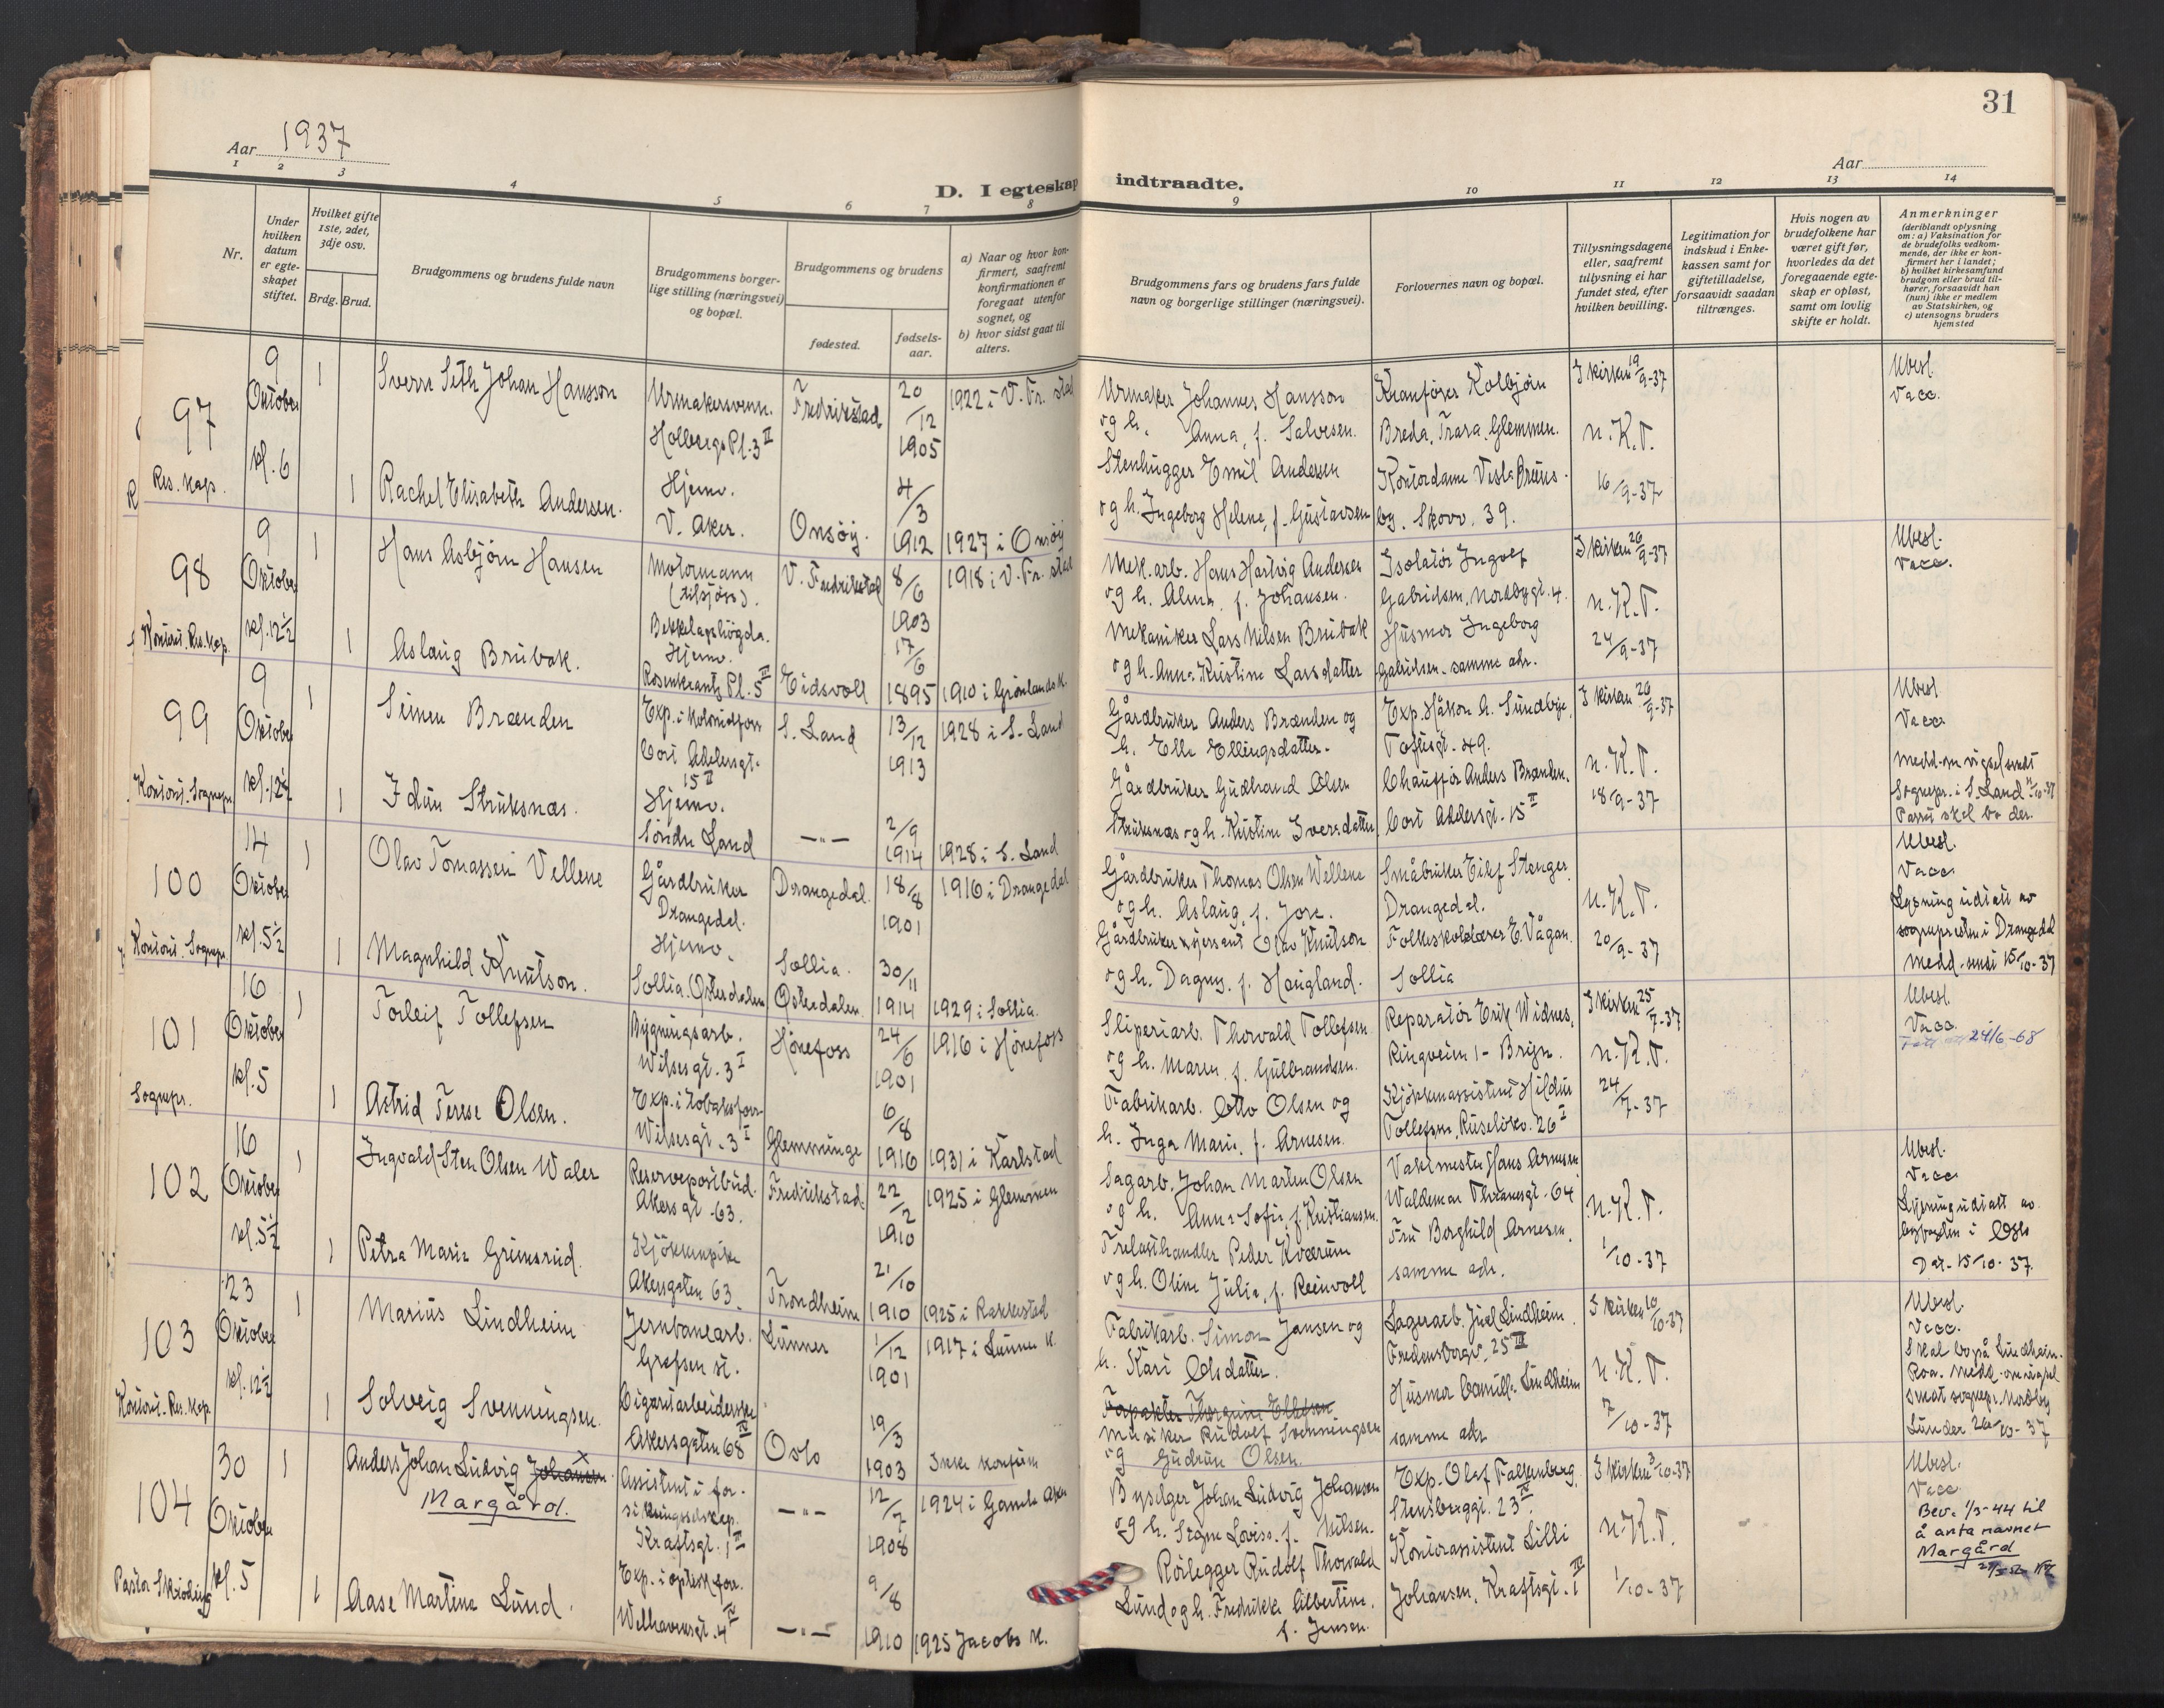 31
Aar 1937
Aar
D. I egteskap indtraadte.
1 2 3 4 5 6 7 8 9 10 11 12 13 14
Nr.
Under hvilken datum er egteskapet stiftet.
Hvilket gifte 1ste, 2det, 3dje osv.
Brdg. Brud.
Brudgommens og brudens fulde navn
Brudgommens borgerlige stilling (næringsvei) og bopæl.
Brudgommens og brudens
fødested.
fødselsaar.
a) Naar og hvor konfirmert, saafremt konfirmationen er foregaat utenfor sognet, og
b) hvor sidst gaat til alters.
Brudgommens fars og brudens fars fulde navn og borgerlige stillinger (næringsvei).
Forlovernes navn og bopæl.
Tillysningsdagene eller, saafremt tillysning ei har fundet sted, efter hvilken bevilling.
Legitimation for indskud i Enkekassen samt for giftetilladelse, forsaavidt saadan tiltrænges.
Hvis nogen av brudefolkene har været gift før, hvorledes da det foregaaende egteskap er opløst, samt om lovlig skifte er holdt.
Anmerkninger
(deriblandt oplysning om: a) Vaksination for de brudefolks vedkommende, der ikke er konfirmert her i landet;
b) hvilket kirkesamfund brudgom eller brud tilhører, forsaavidt han (hun) ikke er medlem av Statskirken, og
c) utensogns bruders hjemsted
97
Res. kap.
9 Oktober kl. 6
1
Sverre Seth Johan Hansson
Urmakersvenn.
Holbergs Pl. 3 II
Fredrikstad
20/12 1905
1922 i V. Fr. stad
Urmaker Johannes Hansson
og h. Anna, f. Salvesen.
Kranfører Kolbjørn
Breda, Trara, Glemmen.
I kirken 19/9-37
n. K. T.
16/9-37
Ubesl.
Vacc.
1
Rachel Elisabeth Andersen.
Hjemv.
V. Aker.
Onsøy.
4/3 1912
1927 i Onsøy
Stenhugger Emil Andersen
og h. Ingeborg Helene, f. Gustavsen
Kontordame Vesla Breens-
by. Skovv. 39.
98
Kontoret. Res. kap.
9 Oktober kl. 12½
1
Hans Asbjørn Hansen
Motormann
(tilsjøss).
Bekkelagshögda.
V. Fredrikstad
8/6 1903
1918 i V. Fr. stad
Mek. arb. Hans Hartvig Andersen
og h. Alma, f. Johansen.
Isolatør Ingolf
Gabrielsen, Nordbygt. 4.
I kirken 26/9-37
n. K. T.
24/9-37
Ubesl.
Vacc.
1
Aslaug Brubak.
Hjemv.
Rosenkrantz Pl. 5 III
Eidsvoll
17/6 1895
1910 i Grønlands k.
Mekaniker Lars Nilsen Brubak
og h. Anna Kristine Larsdatter
Husmor Ingeborg
Gabrielsen - samme adr.
99
Kontoret. Sognepr.
9 Oktober kl. 12½
1
Simen Brænden
Exp. i kolonialforr.
Cort Adelersgt.
15 II
S. Land
13/12 1913
1928 i S. Land
Gårdbruker Anders Brænden og
h. Elle Ellingsdatter.
Exp. Håkon A. Sundbye,
Toftesgt. 49.
I kirken 26/9-37
n. K. T.
18/9-37
Ubesl.
Vacc.
Medd. om vigsel sendt
Sognepr. i S. Land 11/10-37
Parret skal bo der.
1
Idun Struksnæs.
Hjemv.
Søndre Land
— " —
2/9 1914
1928 i S. Land
Gårdbruker Gudbrand Olsen
Struksnæs og h. Kristine Iversdatter
Chauffør Anders Brænden.
Cort Adelersgt. 15 II
100
Kontoret. Sognepr.
14 Oktober kl. 5½
1
Olav Tomassen Vellene
Gårdbruker
Drangedal.
Drangedal.
18/8 1901
1916 i Drangedal
Gårdbruker Thomas Olsen Wellene
og h. Aslaug, f. Jore.
Småbruker Eilif Stenger
Drangedal.
n. K. T.
20/9-37
Ubesl.
Vacc.
Lysning utstatt av
sognepresten i Drangedal
Medd. sendt 15/10-37
1
Magnhild Knutson.
Hjemv.
Sollia. Østerdalen
Sollia. Østerdalen.
30/11 1914
1929 i Sollia.
Olav Knutson
og h. Dagny, f. Haugland.
Folkeskolelærer E. Vågan.
Sollia
101
Sognepr.
16 Oktober kl. 5
1
Torleif Tollefsen
Bygningsarb.
Wilsesgt. 3 I
Hønefoss
24/6 1901
1916 i Hønefoss
Sliperiarb. Thorvald Tollefsen
og h. Maren, f. Gulbrandsen.
Reparatør Erik Widnes,
Ringveien 1 - Bryn.
I kirken 25/7-37
n. K. T.
24/7-37
Ubesl.
Vacc.
24/6-68
1
Astrid Terese Olsen.
Exp. i tobaksforr.
Wilsesgt. 3 I
Glemminge
6/8 1916
1931 i Karlstad
Fabrikarb. Otto Olsen og
h. Inga Marie, f. Arnesen.
Kjøkkenassistent Hildur
Tollefsen, Ruseløkv. 26 I
102
16 Oktober kl. 5½
1
Ingvald Sten Olsen Waler
Reservepostbud.
Akersgt. 63.
Fredrikstad
22/2 1910
1925 i Glemmen
Sagarb. Johan Martin Olsen
og h. Anna Sofie, f. Kristiansen.
Vaktmester Hans Arnesen
Waldemar Thranesgt. 64.
n. K. T.
1/10-37
Ubesl.
Vacc.
Lysning utstatt av
byfogden i Oslo
Dat. 15/10-37.
1
Petra Marie Grimsrud.
Kjøkkenpike
Akersgaten 63.
Trondheim
21/10 1910
1925 i Rakkestad
Trelasthandler Peder Kværum
og h. Oline Julie, f. Reinvoll
Fru Borghild Arnesen.
samme adr.
103
Kontoret. Res. kap.
23 Oktober kl. 12½
1
Marius Lindheim
Jernbanearb.
Grefsen st.
Lunner
1/12 1901
1917 i Lunner k.
Fabrikarb. Simon Jansen og
h. Kari Olsdatter.
Lagerarb. Juel Lindheim.
Fredensborgv. 25 III
I kirken 10/10-37
n. K. T.
7/10-37
Ubesl.
Vacc.
Skal bo på Lindheim.
Roa. Medd. om vigsel
sendt sognepr. Nordby
Lunder 26/10-37
1
Solveig Svenningsen.
Cigaretarbeiderske
Akersgaten 68 IV
Oslo
19/3 1903
Ikke konfirm
Musiker Rudolf Svenningsen
og Gudrun Olsen.
Husmor Camilla Lindheim
samme adr
104
Pastor Skrioling
30 Oktober kl. 5
1
Anders Johan Ludvig Johansen
Margård.
Assistent i for-
sikringsselskap.
Kraftsgt. 1 II
— " —
12/7 1908
1924 i Gamle Aker
Byselger Johan Ludvig Johansen
og h. Signe Lovise, f. Nilsen.
Exp. Olaf Falkenberg,
Stensberggt. 23 IV.
I kirken 3/10-37
n. K. T.
1/10-37
Ubesl.
Vacc.
Bev. 1/3-44 til
å anta navnet
Margård
1
Aase Martine Lund.
Exp. i optisk forr.
Welhavensgt. 4 IV
— " —
9/8 1910
1925 Jacobs k.
Rørlegger Rudolf Thorvald
Lund og h. Fredrikke Albertine,
f. Jensen.
Kontorassistent Lilli
Johansen, Kraftsgt. 1 II